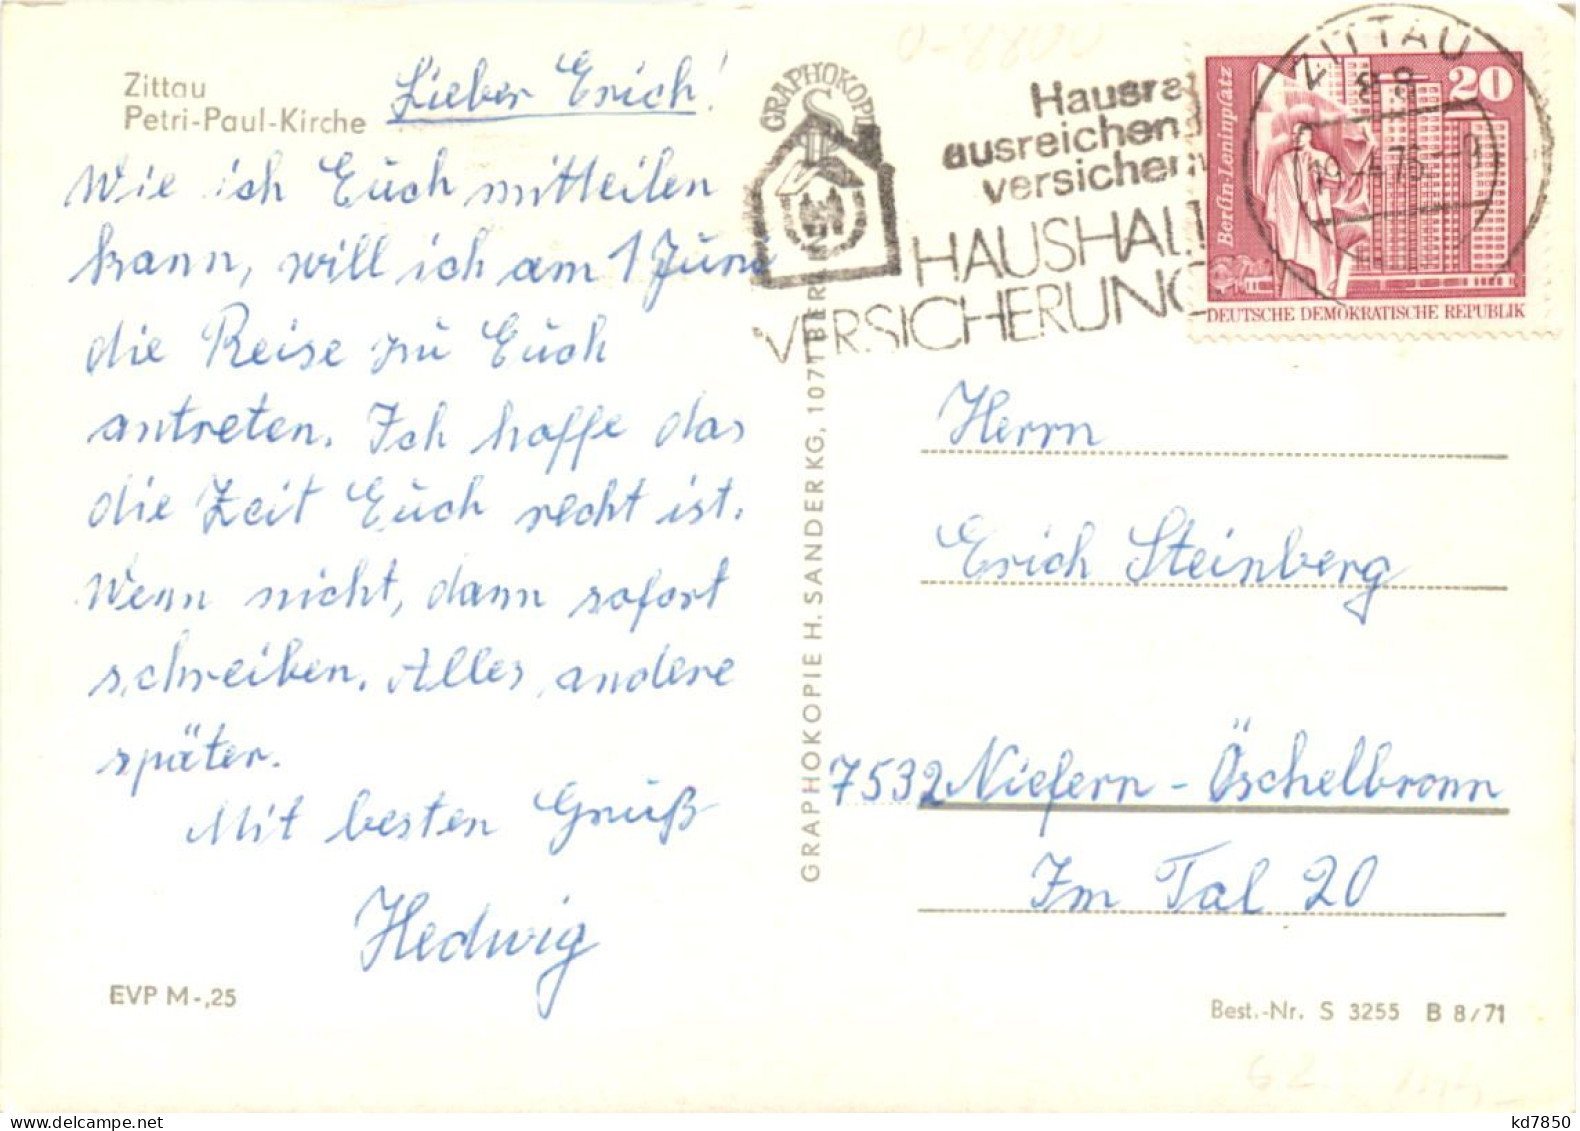 Zittau
Petri-Paul-Kirche
Lieber Erich!
Wie ich Euch mitteilen
kann, will ich am 1 Juni
die Reise zu Euch
antreten. Ich hoffe das
die Zeit Euch recht ist.
Wenn nicht, dann sofort
schreiben. Alles andere
später.
Mit besten Gruß
Hedwig
EVP M -,25
GRAPHOKOPIE H. SANDER KG, 1071 BERLIN
GRAPHOKOPIE
Hausrat
ausreichend
versichern
HAUSHALT
VERSICHERUNG
ZITTAU
88
19.-4.76-9
20
Berlin-Leninplatz
DEUTSCHE DEMOKRATISCHE REPUBLIK
Herrn
Erich Steinberg
7532 Niefern - Öschelbronn
Im Tal 20
Best.-Nr. S 3255 B 8/71
kd7850